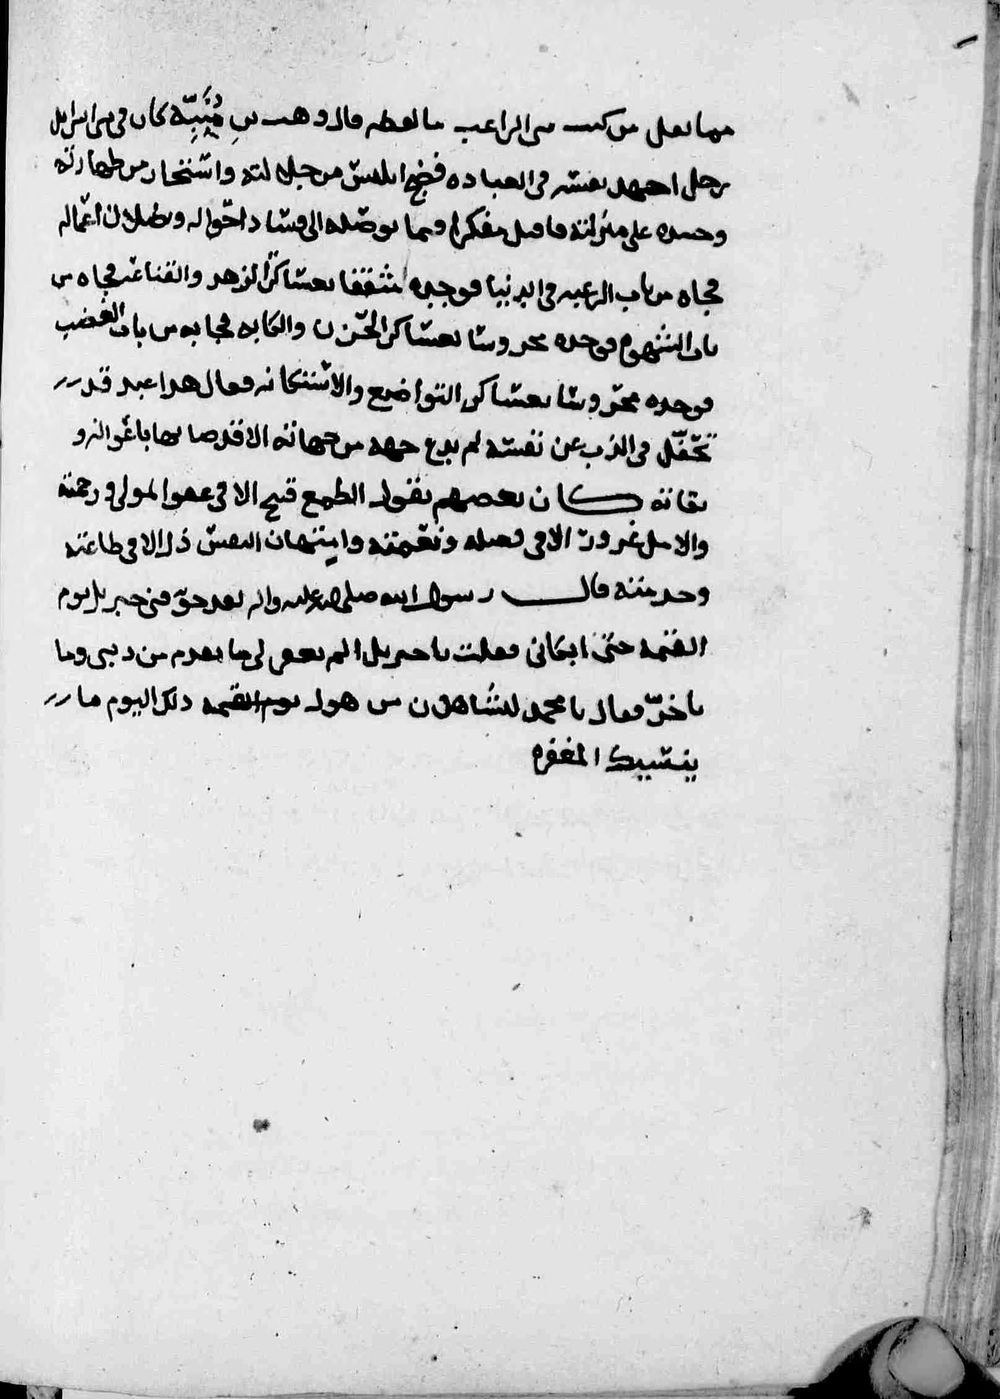 مما نقل من كتب الراعب ما لفظه قال وهب بن مُنَبِّه كان في بني اسرايل
رجل اجهد نفسه في العباده فضج ابليس من جلالته واستخار من طهارته
وحسده على منزلته فاقبل مفكرا فيما يوصله الى فساد احواله وبطلان اعماله
فجاه من باب الرغبه في الدنيا فوجده مثقفا بعساكر الزهد والقناعه فجاه من
باب الشهوه فوجده محروسا بعساكر الحزن والكابه فجا به من باب الغضب
فوجده محروسا بعساكر التواضع والاستكانه فقال هدا عبد قد
تحفّل في الذب عن نفسه لم يدع جهه من جهاته الا قد صانها باعوانه و
ثقاته كان بعضهم يقول الطمع قبيح الا في عفو المولى ورحمته
والامل غرور الا في فضله ونعمته وامتهان النفس ذل الا في طاعته
وخدمته قال رسول الله صلى الله عليه واله لقد خوّفني جبريل يوم
القيمه حتى ابكاني فقلت يا جبريل الم يغفر لي ما تقدم من ذنبي وما
تاخرّ فقال يا محمد لتشاهدن من هول يوم القيمه ذلك اليوم ما
ينسيك المغفره